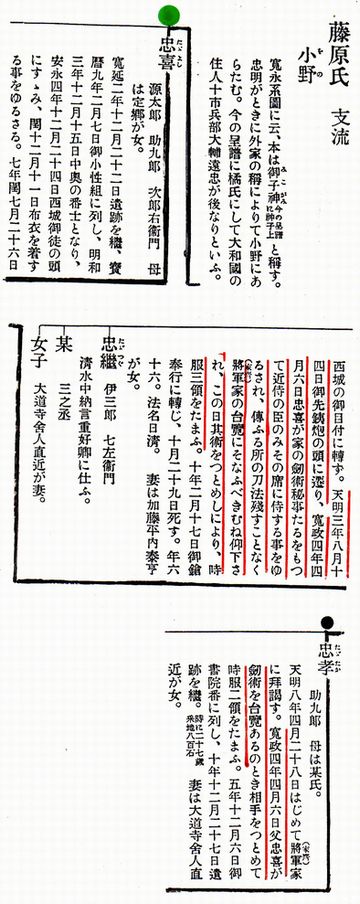 藤原氏 支流
小野
をの
寛永系圖に云、本は御子神今の呈譜に神子上と稱す。
みこがみ
忠明がときに外家の稱によりて小野にあ
らたむ。今の呈譜に橘氏にして大和國の
住人十市兵部大輔遠忠が後なりといふ。
忠喜
たゞよし
源太郎 助九郎 次郎右衞門 母
は定郷が女。
寛延二年十二月二十二日遺跡を繼、寳
暦九年二月七日御小性組に列し、明和
三年十二月十五日中奧の番士となり、
安永四年十二月二十四日西城御徒の頭
にすゝみ、閏十二月十一日布衣を着す
る事をゆるさる。七年閏七月二十六日
西城の御目付に轉ず。天明三年八月十
四日御先鉄炮の頭に遷り、寛政四年四
月六日忠喜が家の劒術秘事たるをもつ
て近侍の臣のみその席に侍する事をゆ
るされ、傳ふる所の刀法殘すことなく
將軍家の台覽にそなふべきむね仰下さ
(家齊)
れ、この日其術をつとめしにより、時
服三領をたまふ。十年二月十七日御鎗
奉行に轉じ、十月二十九日死す。年六
十六。法名日清。 妻は加藤平内泰亨
が女。
忠繼 伊三郎 七左衞門
たゞつぐ
清水中納言重好卿に仕ふ。
某 三之丞
女子 大道寺舍人直近が妻。
忠孝
たゞたか
助九郎 母は某氏。
天明八年四月二十八日はじめて將軍家
(家齊)
に拜謁す。寛政四年四月六日父忠喜が
劒術を台覽あるのとき相手をつとめて
時服二領をたまふ。五年十二月六日御
書院番に列し、十年十二月二十七日遺
跡を繼。時に二十七歳 采地八百石 妻は大道寺舍人直
近が女。